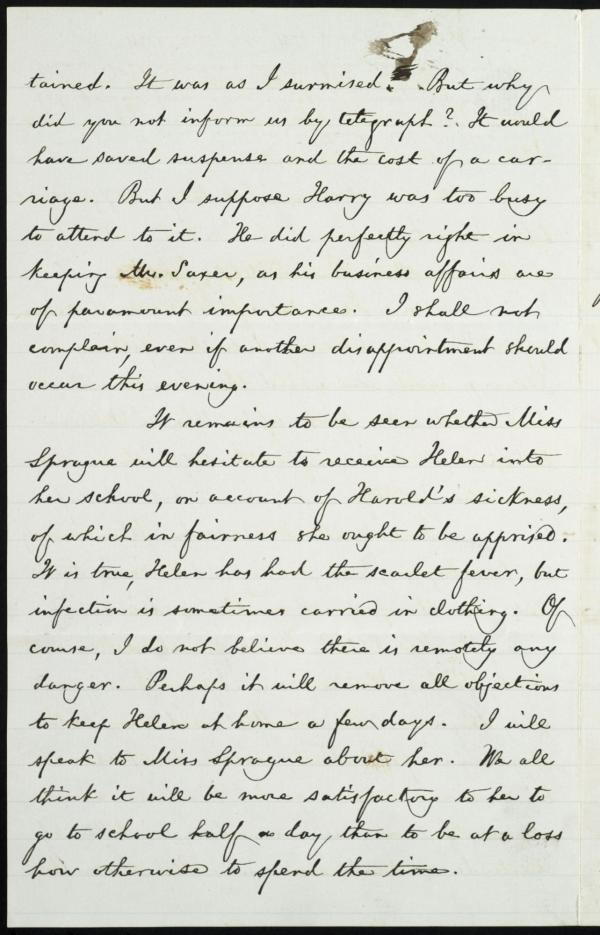 tained. It was as I surmised. But why
did you not inform us by telegraph? It would
have saved suspense and the cost of a car-
riage. But I suppose Harry was too busy
to attend to it. He did perfectly right in
keeping Mr. Saxer, as his business affairs are
of paramount importance. I shall not
complain, even if another disappointment should
occur this evening.
It remains to be seen whether Miss
Sprague will hesitate to receive Helen into
her school, on account of Harold's sickness,
of which in fairness she ought to be apprised.
It is true, Helen has had the scarlet fever, but
infection is sometimes carried in clothing. Of
course, I do not believe there is remotely any
danger. Perhaps it will remove all objections
to keep Helen at home a few days. I will
speak to Miss Sprague about her. We all
think it will be more satisfactory to her to
go to school half a day, than to be at a loss
how otherwise to spend the time.